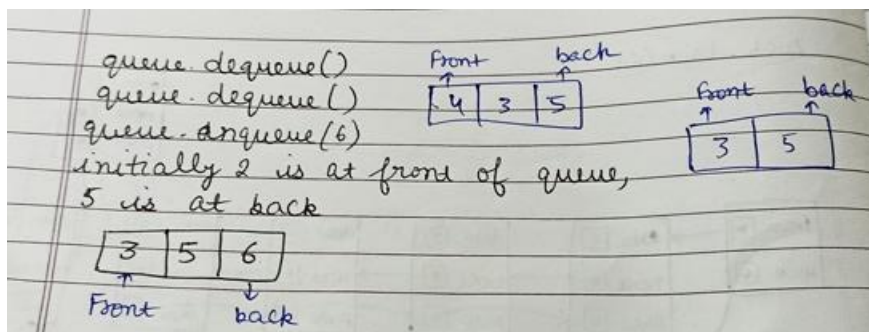 queue.dequeue()
queue.dequeue()
queue.enqueue(6)
initially 2 is at front of queue,
5 is at back
Front back
4 3 5
Front back
3 5
3 5 6
Front back